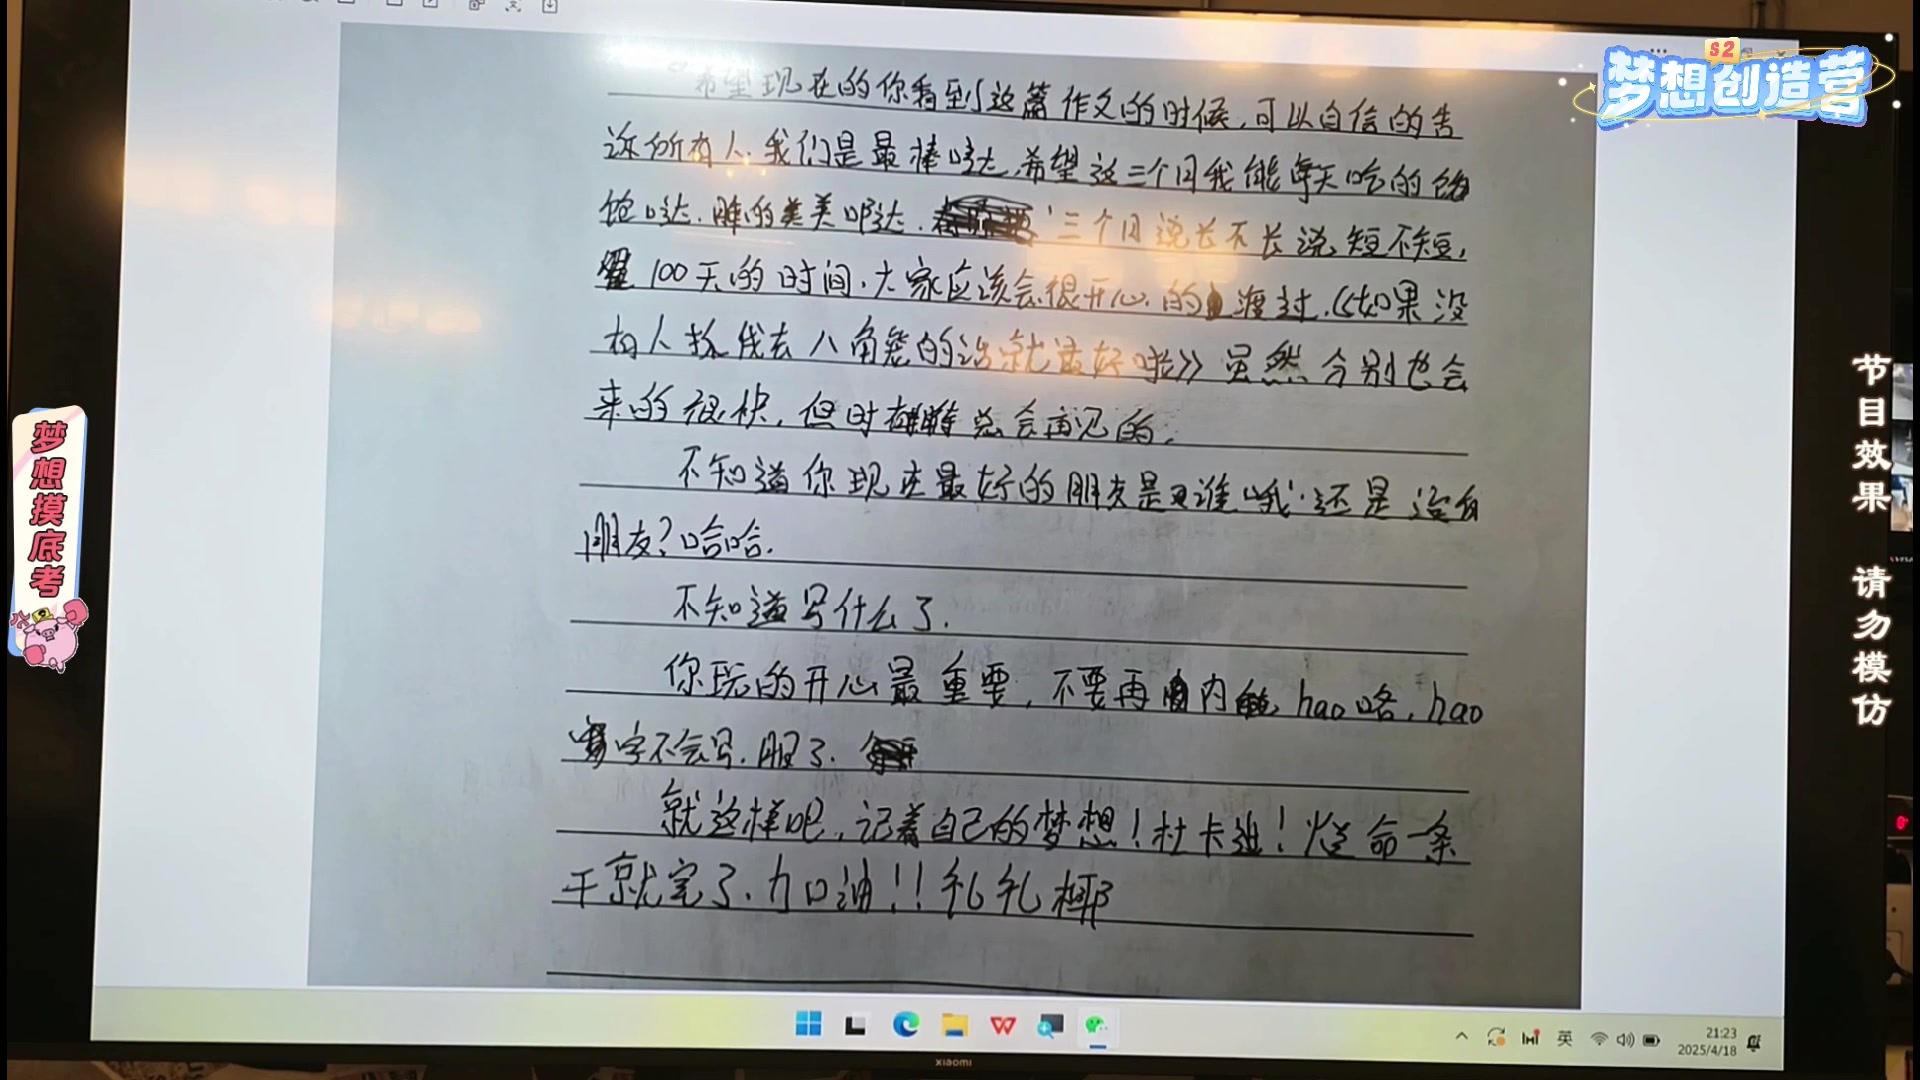 S2
梦想创造营
希望现在的你看到这篇作文的时候,可以自信的告
诉所有人,我们是最棒哒,希望这三个月我能每天吃的饱
饱哒,睡的美美哒. 三个月说长不长说短不短,
100天的时间,大家应该会很开心的渡过.《如果没
有人找我去八角笼的话就最好啦》虽然分别也会
来的很快,但时 总会再见的.
不知道你现在最好的朋友是谁哦.还是没有
朋友?哈哈.
不知道写什么了.
你玩的开心最重要,不要再内hao咯,hao
字不会写.服了.
就这样吧,记着自己的梦想!杜卡迪!烂命一条
干就完了.加油!!礼礼椰
梦想摸底考
节目效果 请勿模仿
英
21:23
2025/4/18
xiaomi